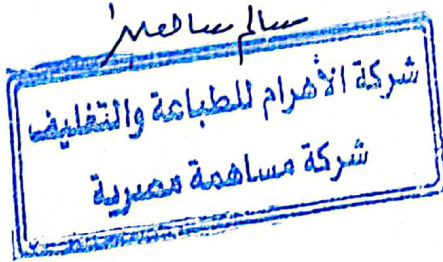 سالم سالم
شركة الأهرام للطباعة والتغليف
شركة مساهمة مصرية